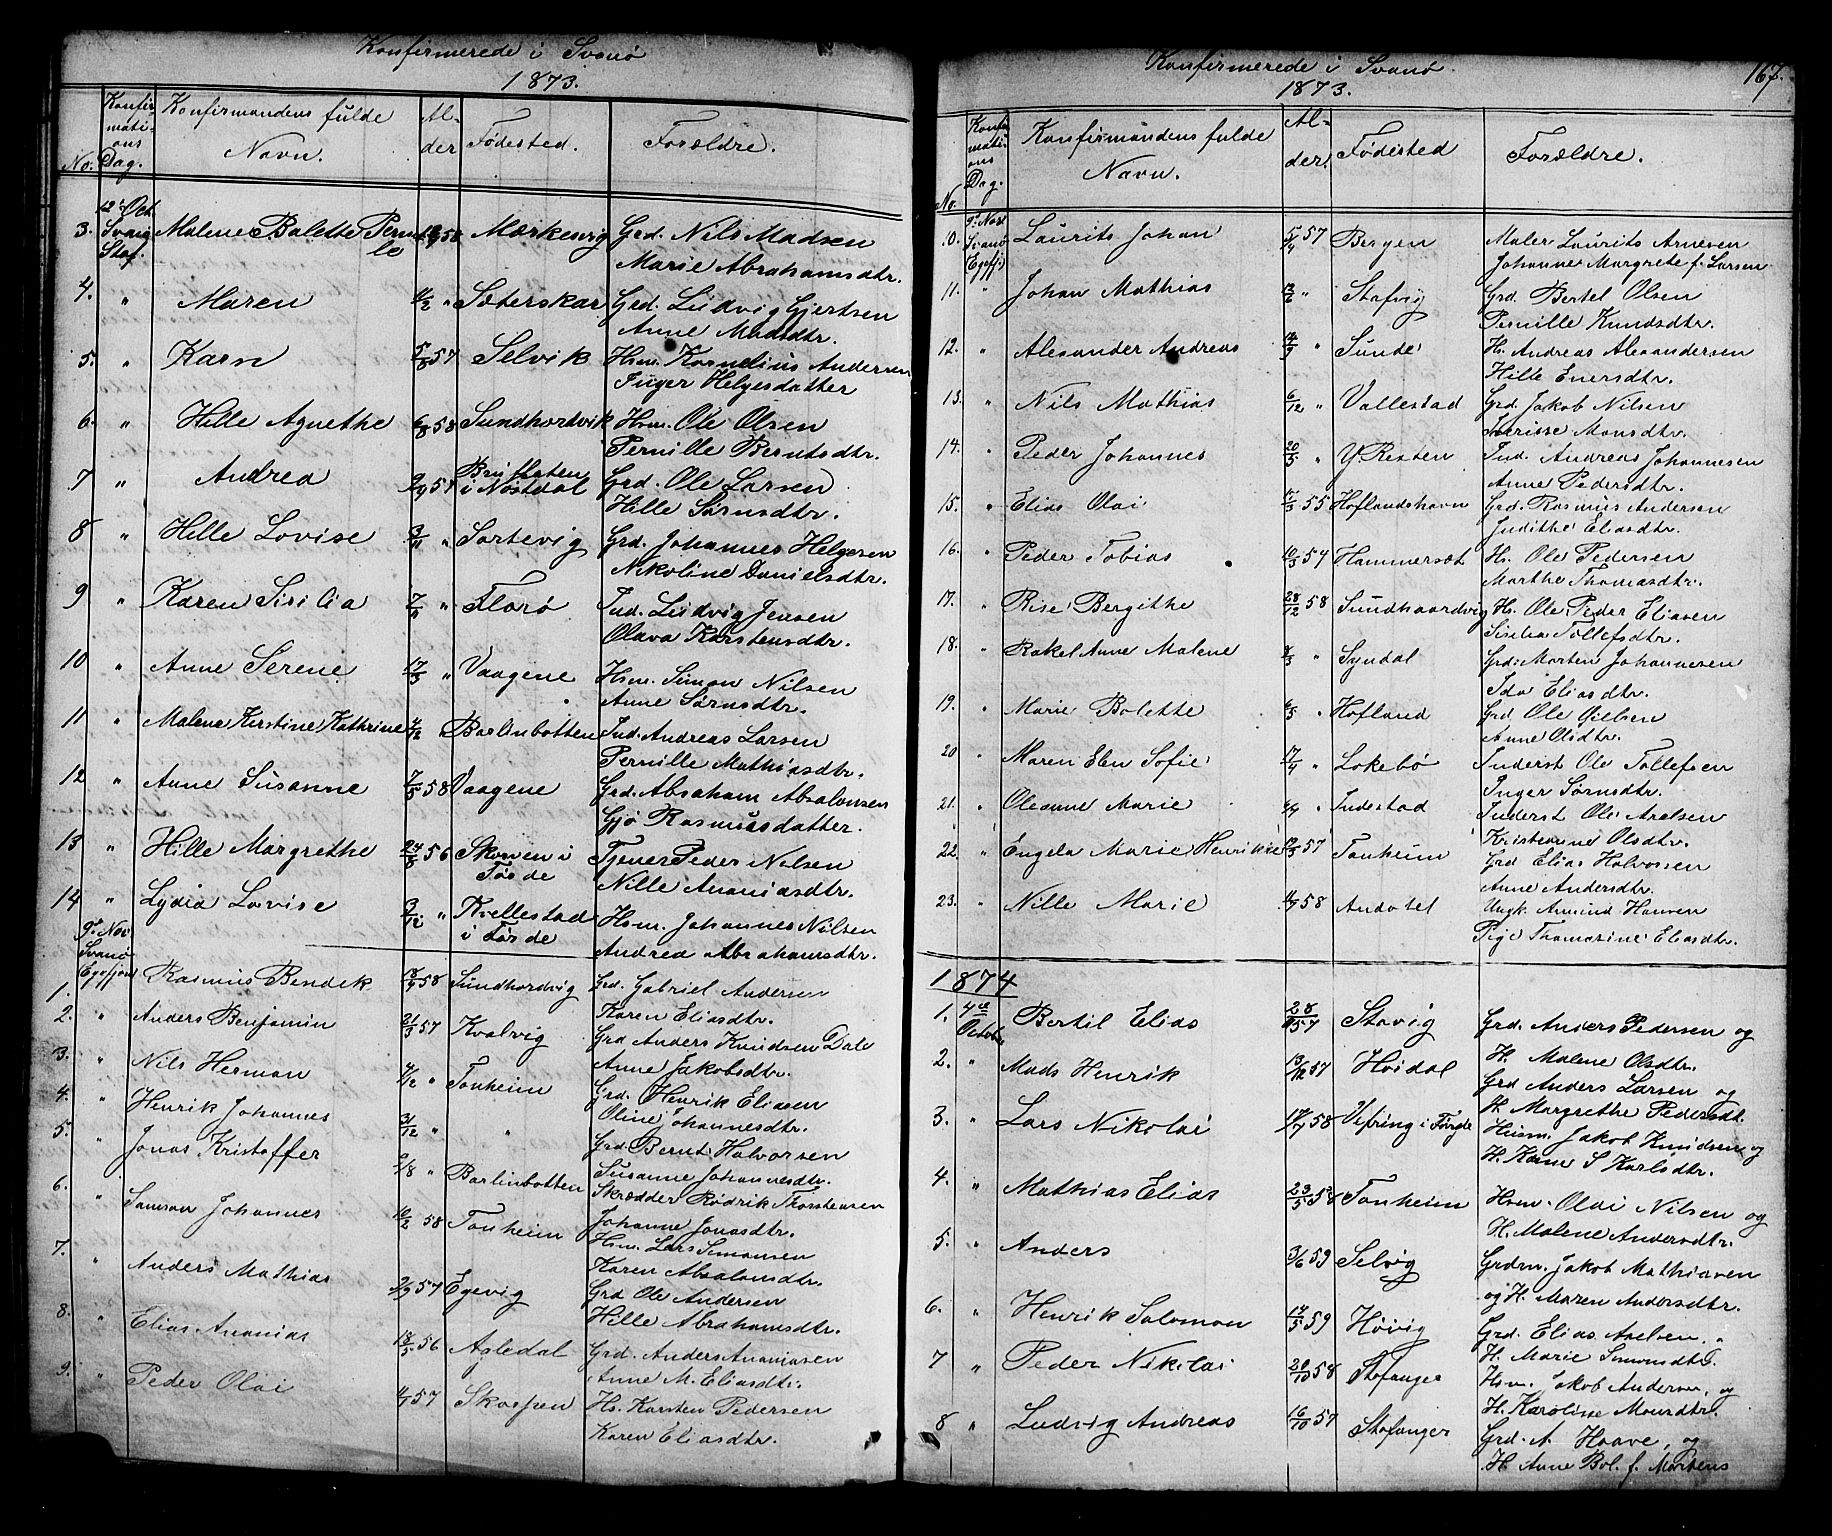 Konfirmerede i Svanø
1873.
No. Konfirmations Dag. Konfirmandens fulde Navn. Alder Fødested. Forældre.
12te Oct. Svanø Staf.
3. Malene Bolette Pernille 58 Markesvig Grd. Nils Madsen
Marie Abrahamsdtr.
4. " Maren " Sæterskar Grd. Ludvig Gjertsen
Anne Madsdtr.
5. " Karn 57 Selvik Hsm. Kornelius Andersen
Inger Helgesdatter
6. " Hille Agnethe 6/8 58 Sundhordvik Hsm. Ole Olsen
Pernille Berntsdtr.
7 " Andrea 57 i Nøstdal Grd. Ole Larsen
Hille Sørnsdtr.
8 " Hille Lovise 3/11 " Sortevig Grd. Johannes Helgesen
Nikoline Danielsdtr.
9 " Karen Sisilia " Florø Ind. Ludvig Jensen
Olava Karstensdtr.
10 " Anne Serene 17/3 " Vaagene Hsm. Simon Nilsen
Anne Sørnsdtr.
11 " Malene Kirstine Kathrine " Barlinbotten Ind. Andreas Larsen
Pernille Mathiasdtr.
12 " Anne Susanne 7/5 58 Vaagene Grd. Abraham Absalonsen
Gjø Rasmusdatter.
13 " Hille Margrethe 24/3 56 Skorven i Førde Tjener Peder Nelsen
Nille Ananiasdtr.
14 " Lydia Lovise " Kvellestad i Førde Hsm. Johannes Nilsen
Andrea Abrahamsdtr.
9de Nov. Svanø Egefjord
1. Rasmus Bendik 58 Sundhordvig Grd. Gabriel Andersen
Karen Eliasdtr.
2. " Anders Benjamin 21/3 57 Kvalvig Grd Anders Knudsen Dale
Anne Jakobsdtr.
3. " Nils Herman " Tonheim Grd. Henrik Eliasen
Oline Johannesdtr.
4. " Henrik Johannes 3/12 " " Grd. Bernt Halvorsen
Susanne Johannesdtr.
5. " Jonas Kristoffer " Barlinbotten Skrædder Rødrik Thorstensen
Johanne Jonasdtr.
6. " Samson Johannes 10/2 58 Tonheim Hsm. Lars Simonsen
Karen Absalonsdtr.
7. " Anders Mathias 57 Egevig Grd Ole Andersen
Hille Abrahamsdtr.
8. " Elias Ananias 18/5 56 Agledal Grd. Anders Ananiasen
Anne M. Eliasdtr.
9. " Peder Olai 57 Skorpen Hs. Karsten Pedersen
Karen Eliasdtr.
Konfirmerede i Svanø
1873.
167.
No. Konfirmations Dag. Konfirmandens fulde Navn. Alder. Fødested Forældre.
9de Nov. Svanø Egefj
10. Laurits Johan 5/4 57 Bergen Maler Laurits Arnesen
Johanne Margrete f. Larsen
11. " Johan Mathias " Stafvig Grd. Bertel Olsen
Pernille Knudsdtr.
12. " Alexander Andreas 14/9 " Sunde H. Andreas Alexandersen
Hille Enersdtr.
13. " Nils Mathias 6/12 " Vallestad Grd. Jakob Nilsen
Monsdtr.
14. " Peder Johannes " Y. Resten Ind. Andreas Johannesen
Anne Pedersdtr.
15. " Elias Olai 55 Hoflandshavn Grd. Rasmus Andersen
Judithe Eliasdtr.
16. " Peder Tobias 10/3 54 Hammersæt H. Ole Pedersen
Marthe Thomasdtr.
17. " Rise Bergithe 28/12 58 Sundhaardvig Hs. Ole Peder Eliasen
Sisilia Tollefsdtr.
18. " Rakel Anne Malene " Syndal Grd. Morten Johannesen
Ida Eliasdtr.
19. " Marie Bolette " Hofland Grd Ole Gielsen
Anne Olsdtr.
20 " Maren Elen Sofie 17/4 " Lokebø Inderst Ole Tollefsen
Inger Sørnsdtr.
21. " Oleanne Marie " Indestad Inderst Ole Axelsen
Kristianne Olsdtr.
22. " Engela Marie Henrikke 57 Tonheim Grd Elias Halvossen
Anne Andersdtr.
23. " Nille Marie 58 Andalel Ungk. Amund Hansen
Pige Thomasine Eliasdtr.
1874
1. 4de Octob. Bertil Elias 57 Stavig Grd. Anders Pedersen og
H. Malene Olsdtr.
2. " Mads Henrik 13/12 57 Høidal Grd Anders Larsen og
H. Margrethe Pedersdt.
3. " Lars Nikolai 58 Vefring i Førde Husm. Jakob Knudsen og
H. Kane S Karlsdtr.
4. " Mathias Elias 23/5 58 Tonheim Hsm. Olai Nilsen og
H. Malene Andersdtr.
5. " Anders 3/6 59 Selvig Grdm. Jakob Mathiasen
og H. Maren Andersdtr.
6. " Henrik Salomon 59 Høivig Grd. Elias Axelsen, "
H. Marie Simonsdtr.
7 " Peder Nikolai 58 Stafanger Hsm. Jakob Andersen, og
H. Karoline Monsdtr.
8 " Ludvig Andreas 16/10 57 Stafanger Grd. A Haave, og
H Anne Bol. f. Martens